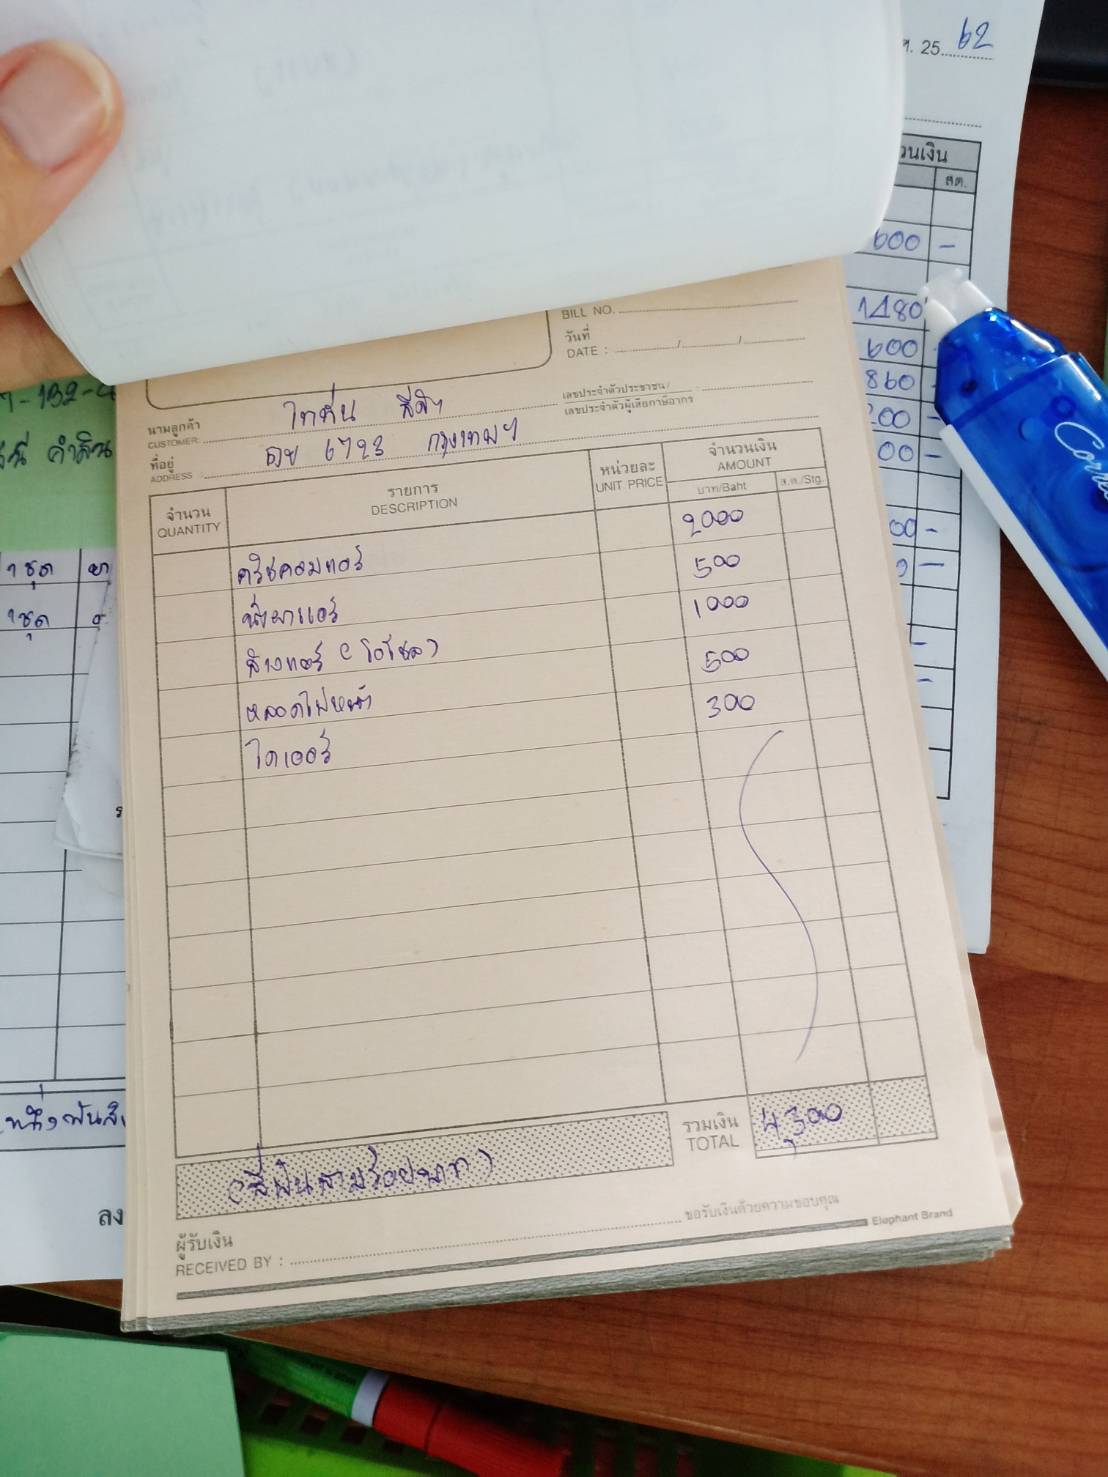 ศ. 25 62
วนเงิน
สต.
600 -
1480
600
860
200 -
00 -
00 -
BILL NO.
วันที่
DATE : / /
นามลูกค้า
CUSTOMER:
เลขประจำตัวประชาชน/
เลขประจำตัวผู้เสียภาษีอากร
ที่อยู่
ADDRESS : 6723 กรุงเทพฯ
จำนวน
QUANTITY
รายการ
DESCRIPTION
หน่วยละ
UNIT PRICE
จำนวนเงิน
AMOUNT
บาท/Baht ส.ต./Stg.
2000
500
1000
500
300
ครัชคอมแอร์
น้ำยาแอร์
ล้างแอร์ (โบโซล)
หลอดไฟหน้า
ไดเออร์
รวมเงิน
TOTAL
4,300
(สี่พันสามร้อยบาท)
ผู้รับเงิน
RECEIVED BY :
ขอรับเงินด้วยความขอบคุณ
Elephant Brand
1 ชุด
1 ชุด
ลง